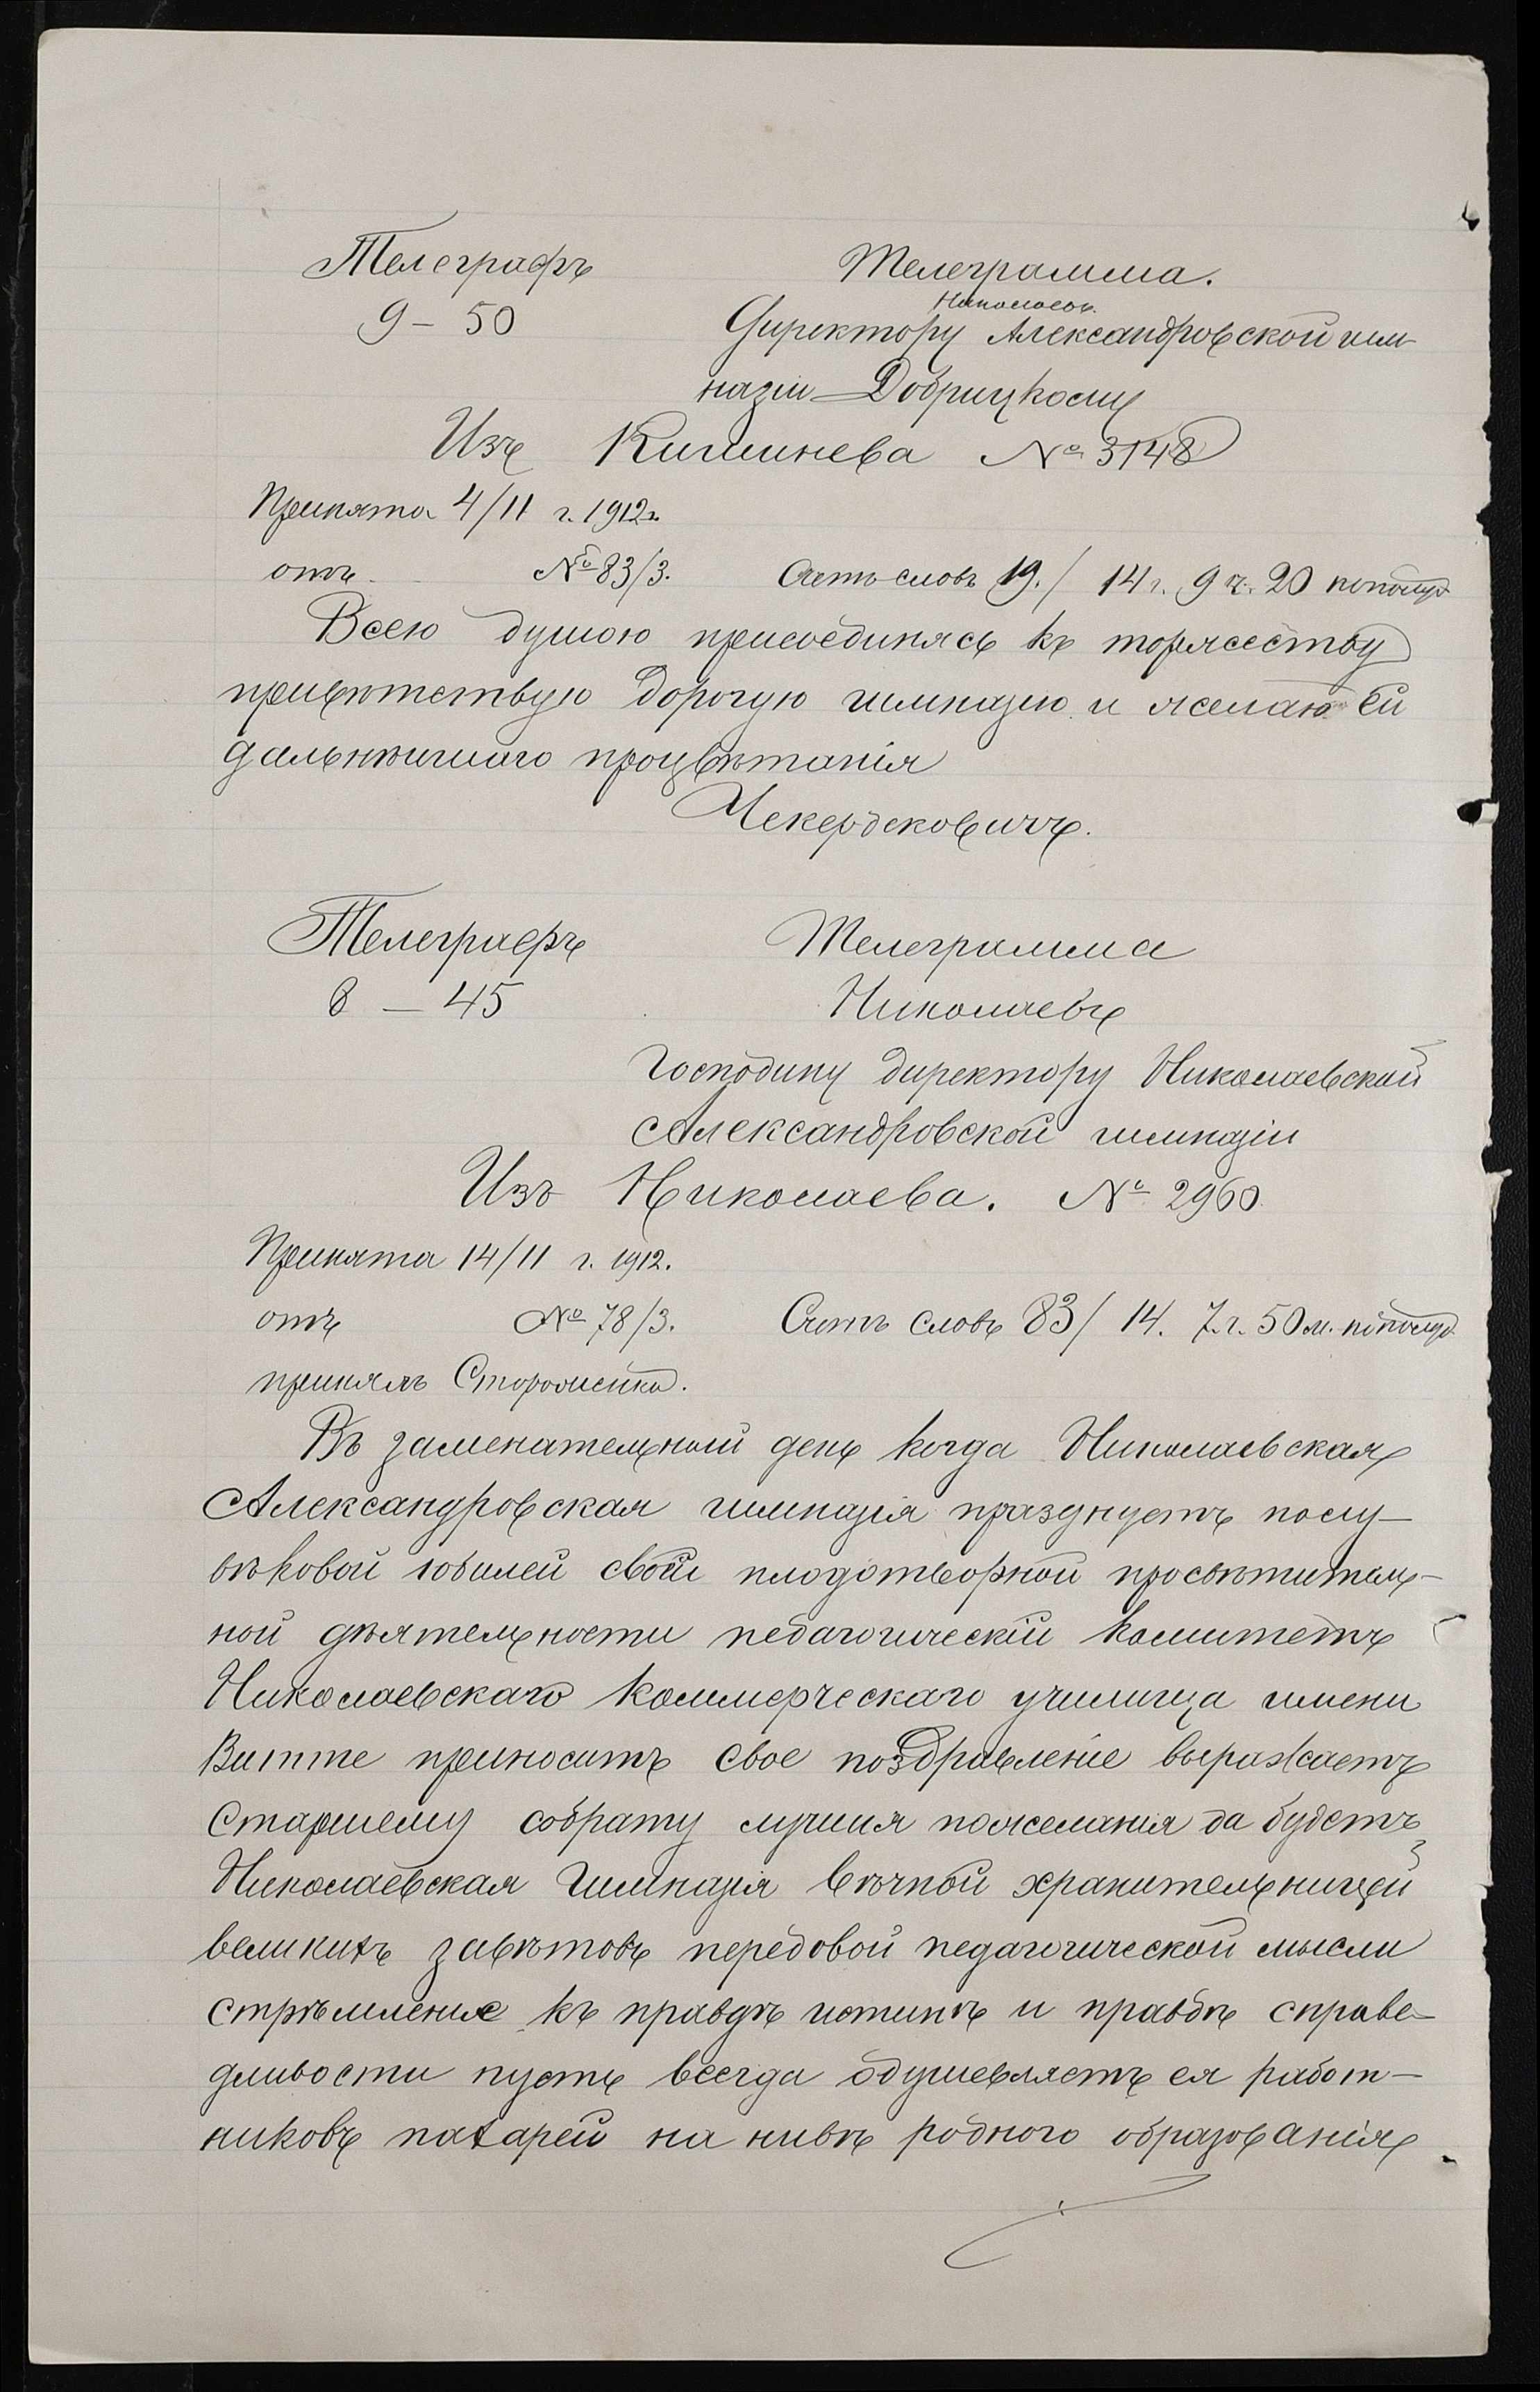 Телеграфъ Телеграмма.
Николаевъ.
9 – 50 Директору Александровской гим-
назіи – Добрицкому
Изъ Кишинева № 3148
Принята 4/11 г. 1912 г.
отъ № 83/3. Счетъ словъ 19. / 14 г. 9 ч. 20 пополуд
Всею душою присоединясь къ торжеству
привѣтствую дорогую гимназію и желаю ей
дальнѣйшаго процвѣтанія
Чекердековичъ.
Телеграфъ Телеграмма
8 – 45 Николаевъ
Господину директору Николаевской
Александровской гимназіи
Изъ Николаева. № 2960.
Принята 14/11 г. 1912.
отъ № 78/3. Счетъ словъ 83 / 14. 7 г. 50 м. пополуд
принялъ Стороженко.
Въ замечательный день когда Николаевская
Александровская гимназія празднуетъ полу-
вѣковой юбилей своей плодотворной просвѣтитель-
ной дѣятельности педагогическій комитетъ
Николаевскаго Коммерческаго училища имени
Витте приноситъ свое поздравленіе выражаетъ
Старшему собрату лучшія пожеланія да будетъ
Николаевская Гимназія вѣчной хранительницей
великихъ завѣтовъ передовой педагогической мысли
стрѣмленіе къ правдѣ истинѣ и правдѣ справе-
дливости пусть всегда одушевляетъ ея работ-
никовъ пахарей на нивѣ родного образованія